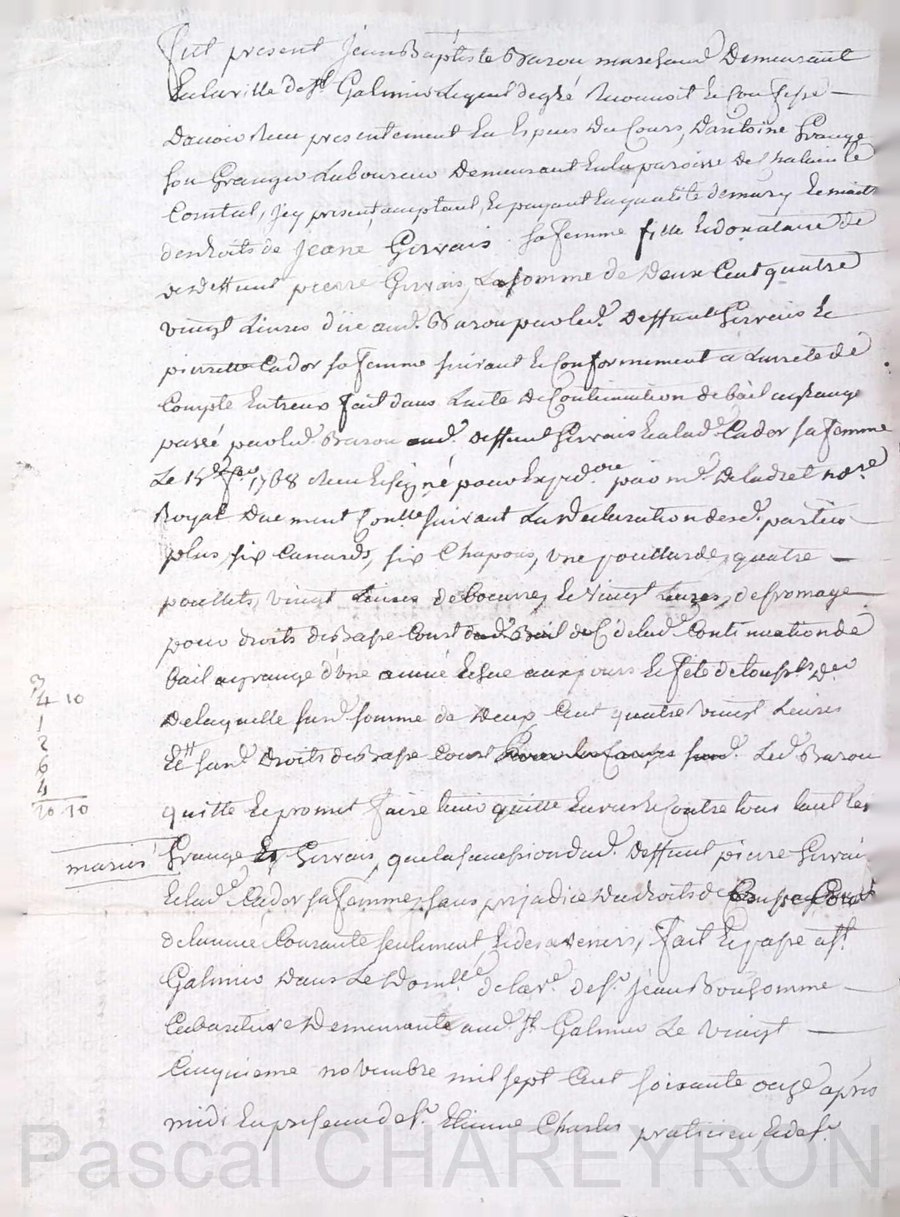 Fut present Jean Baptiste Barou marchand Demeurant
En la ville de St Galmier Lequel de gré Reconnoit Et Confesse
Davoir Reçu presentement En Especes Du Cours, Dantoine Grange
son Granger Laboureur Demeurant En la paroisse de Chalain le
Comtal, Icy present, acceptant, Et payant En qualité de mary Et maitre
des droits de Jeane Gervais sa femme fille Et donataire de
deffunt pierre Gervais, La somme de Deux Cent quatre
vingt Livres düe aud. Barou par led. Deffunt Gervais Et
pierrette Cador sa femme suivant Et Conformement a Larreté de
Compte Entreux fait dans Lacte De Continuation de bail a grange
passé par led. Barou aud. Deffunt Gervais Et a lad. Cador sa femme
Le 15e 1768 Reçu Et signé pour Expedore par me Deladret nore
Royal Duement Contlle suivant La Declaration desd. parties
plus six Canards, six Chapons, une poullarde, quatre
poullets, vingt Livres de beurre, Et vingt Livres de fromage
pour droits de Basse Court de lad. Continuation de
bail a grange d'une année Echue aux jours Et fete de toussts Der
De laquelle susd. somme de Deux Cent quatre vingt Livres
Et susd. droits de Basse Court Led. Barou
quitte Et promet faire tenir quitte Envers Et Contre tous tant les
mariés Grange Et Gervais, que la succession dud. Deffunt pierre Gervais
Et lad. Cador sa femme, sans prejudice Des droits de Basse Court
de lannee Courante seulement Et des a venirs, fait Et passé a St
Galmier Dans Le Domlle de la ve. de sr. Jean Bonhomme
Cabaretiere Demeurante aud. St Galmier Le vingt
Cinquieme novembre mil sept Cent soixante onze apres
midi En presence de sr. Etienne Charles praticien Et de sr.
3
4 10
1
2
6
4
20 10
Pascal CHAREYRON